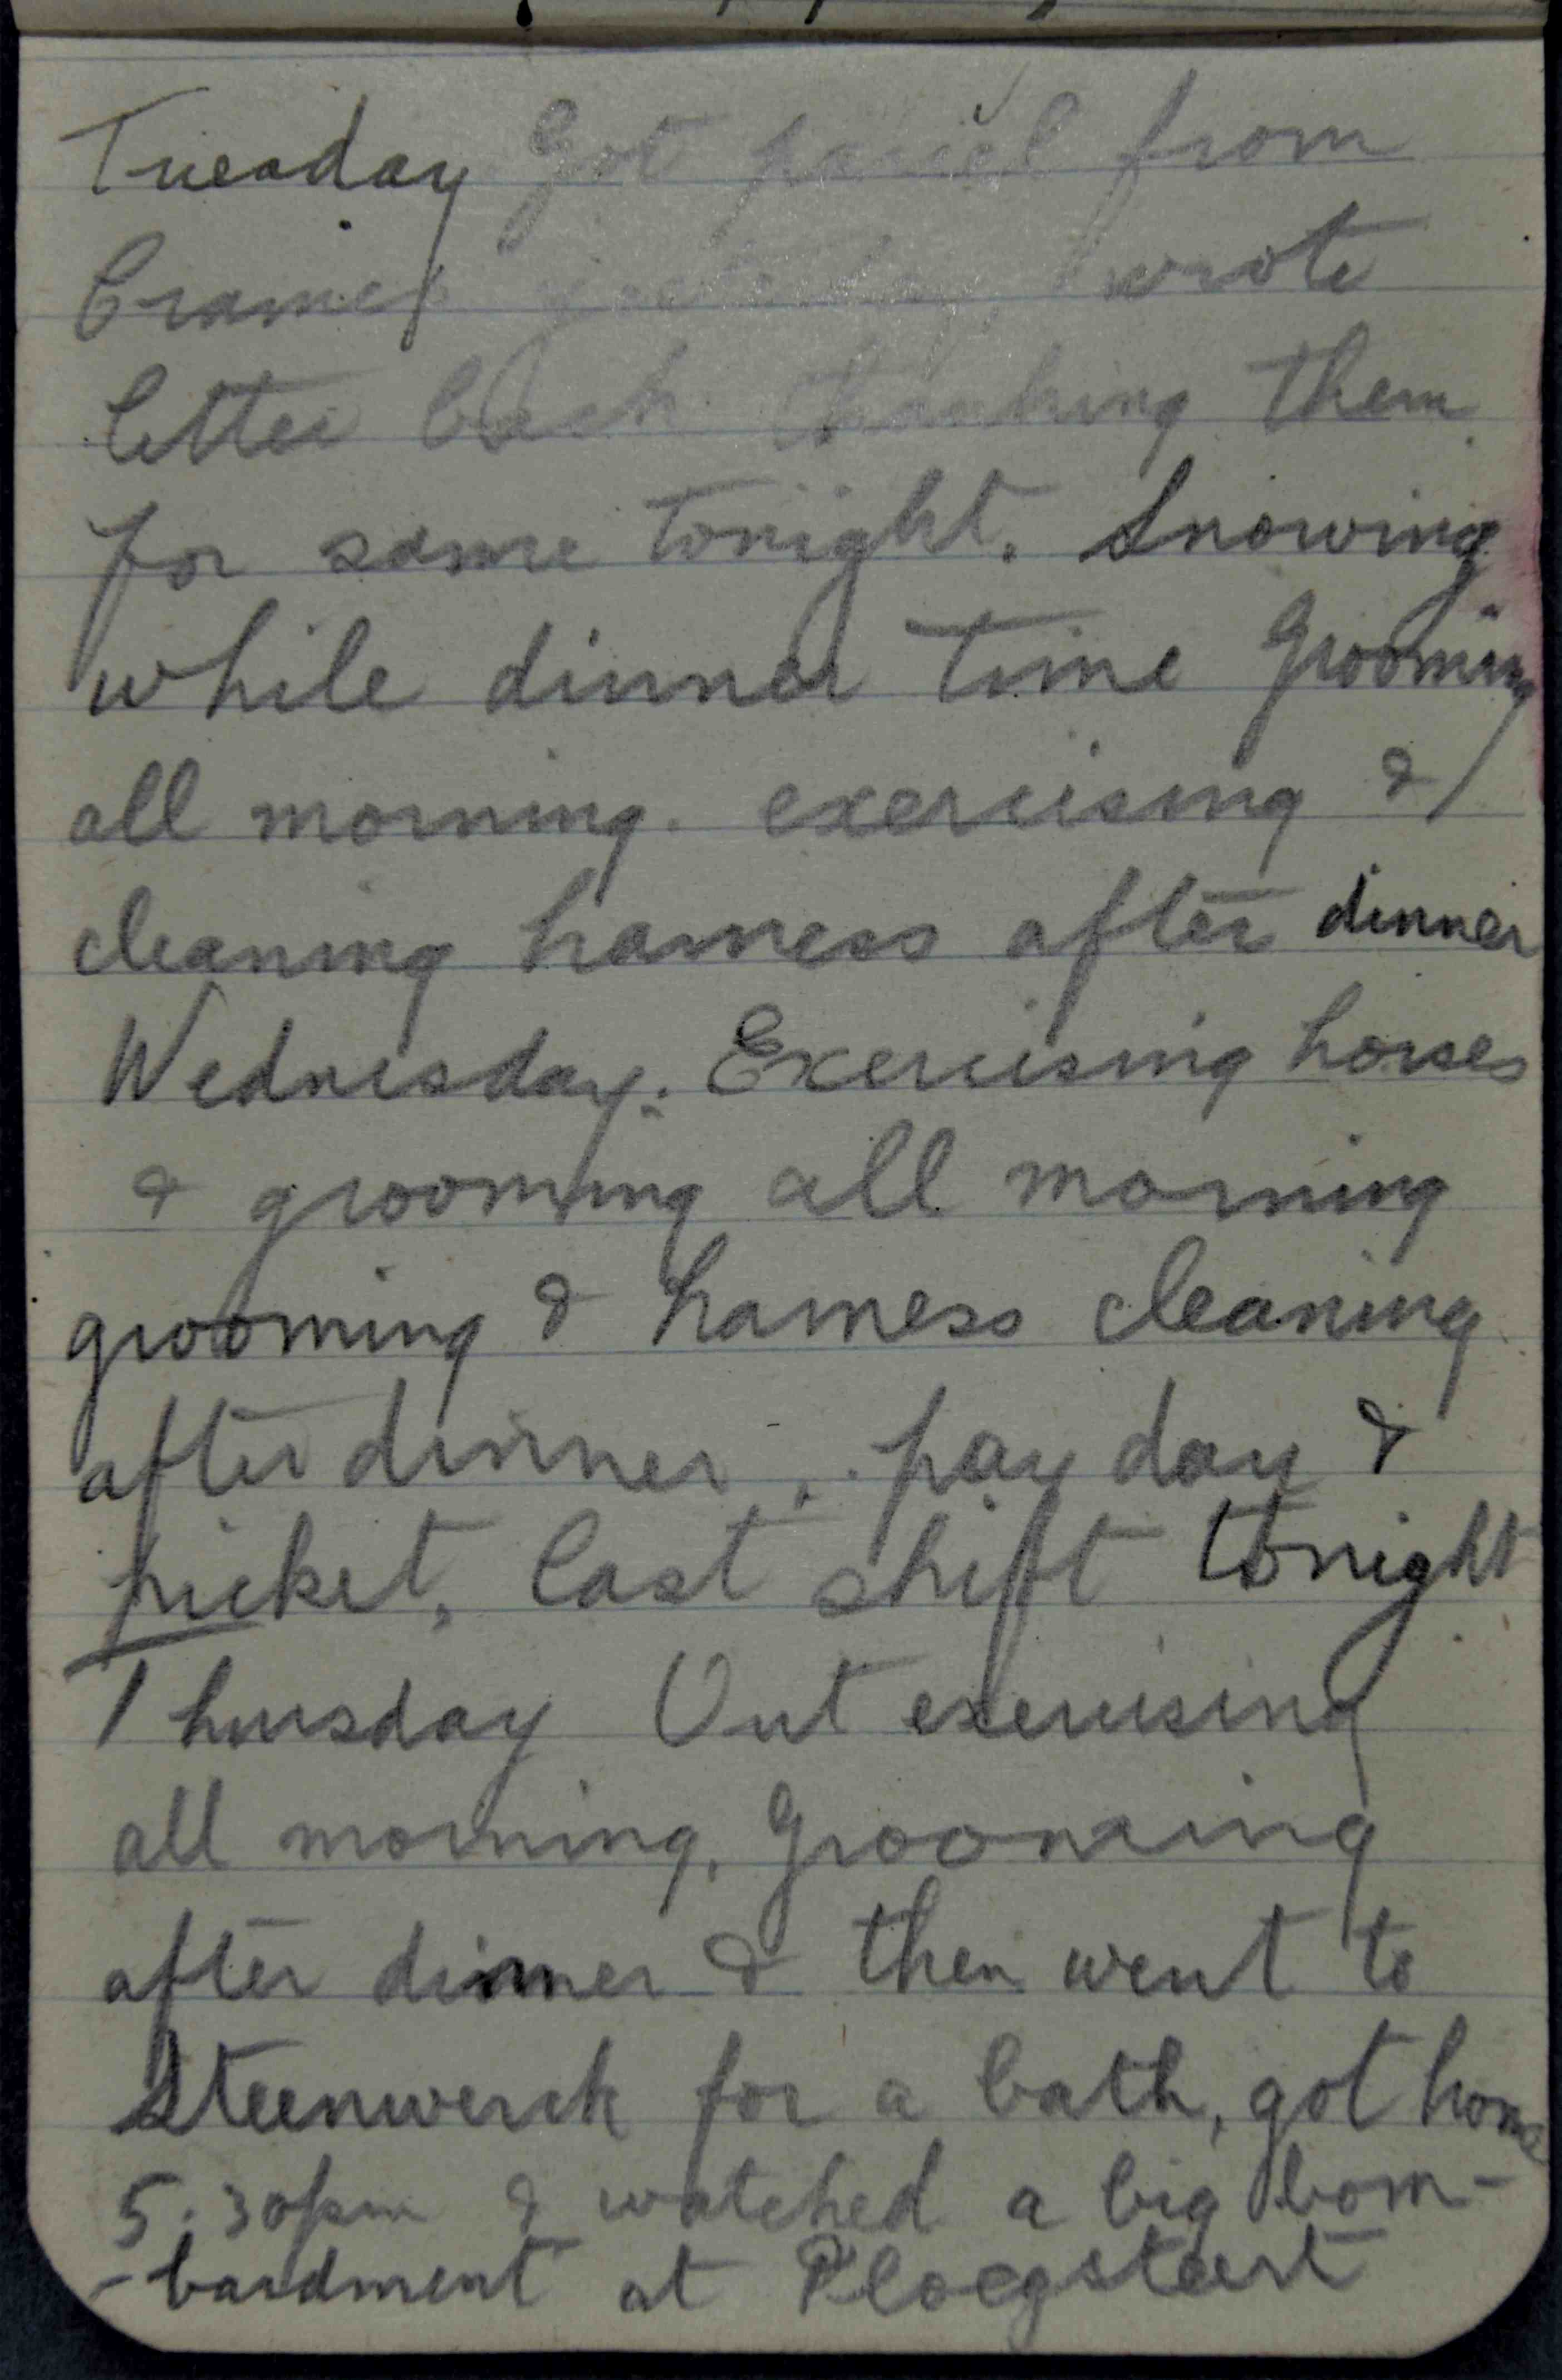 Tuesday Got parcel from
yesterday, wrote
letter back thanking them
for same tonight. Snowing
while dinner time Grooming
all morning. exercising &
cleaning harness after dinner
Wednesday. Exercising horses
& grooming all morning
grooming & harness cleaning
after dinner, pay day &
picket, last shift tonight
Thursday Out exercising
all morning, Grooming
after dinner & then went to
Steenwerck for a bath, got home
5.30pm & watched a big bom-
-bardment at Ploegsteert